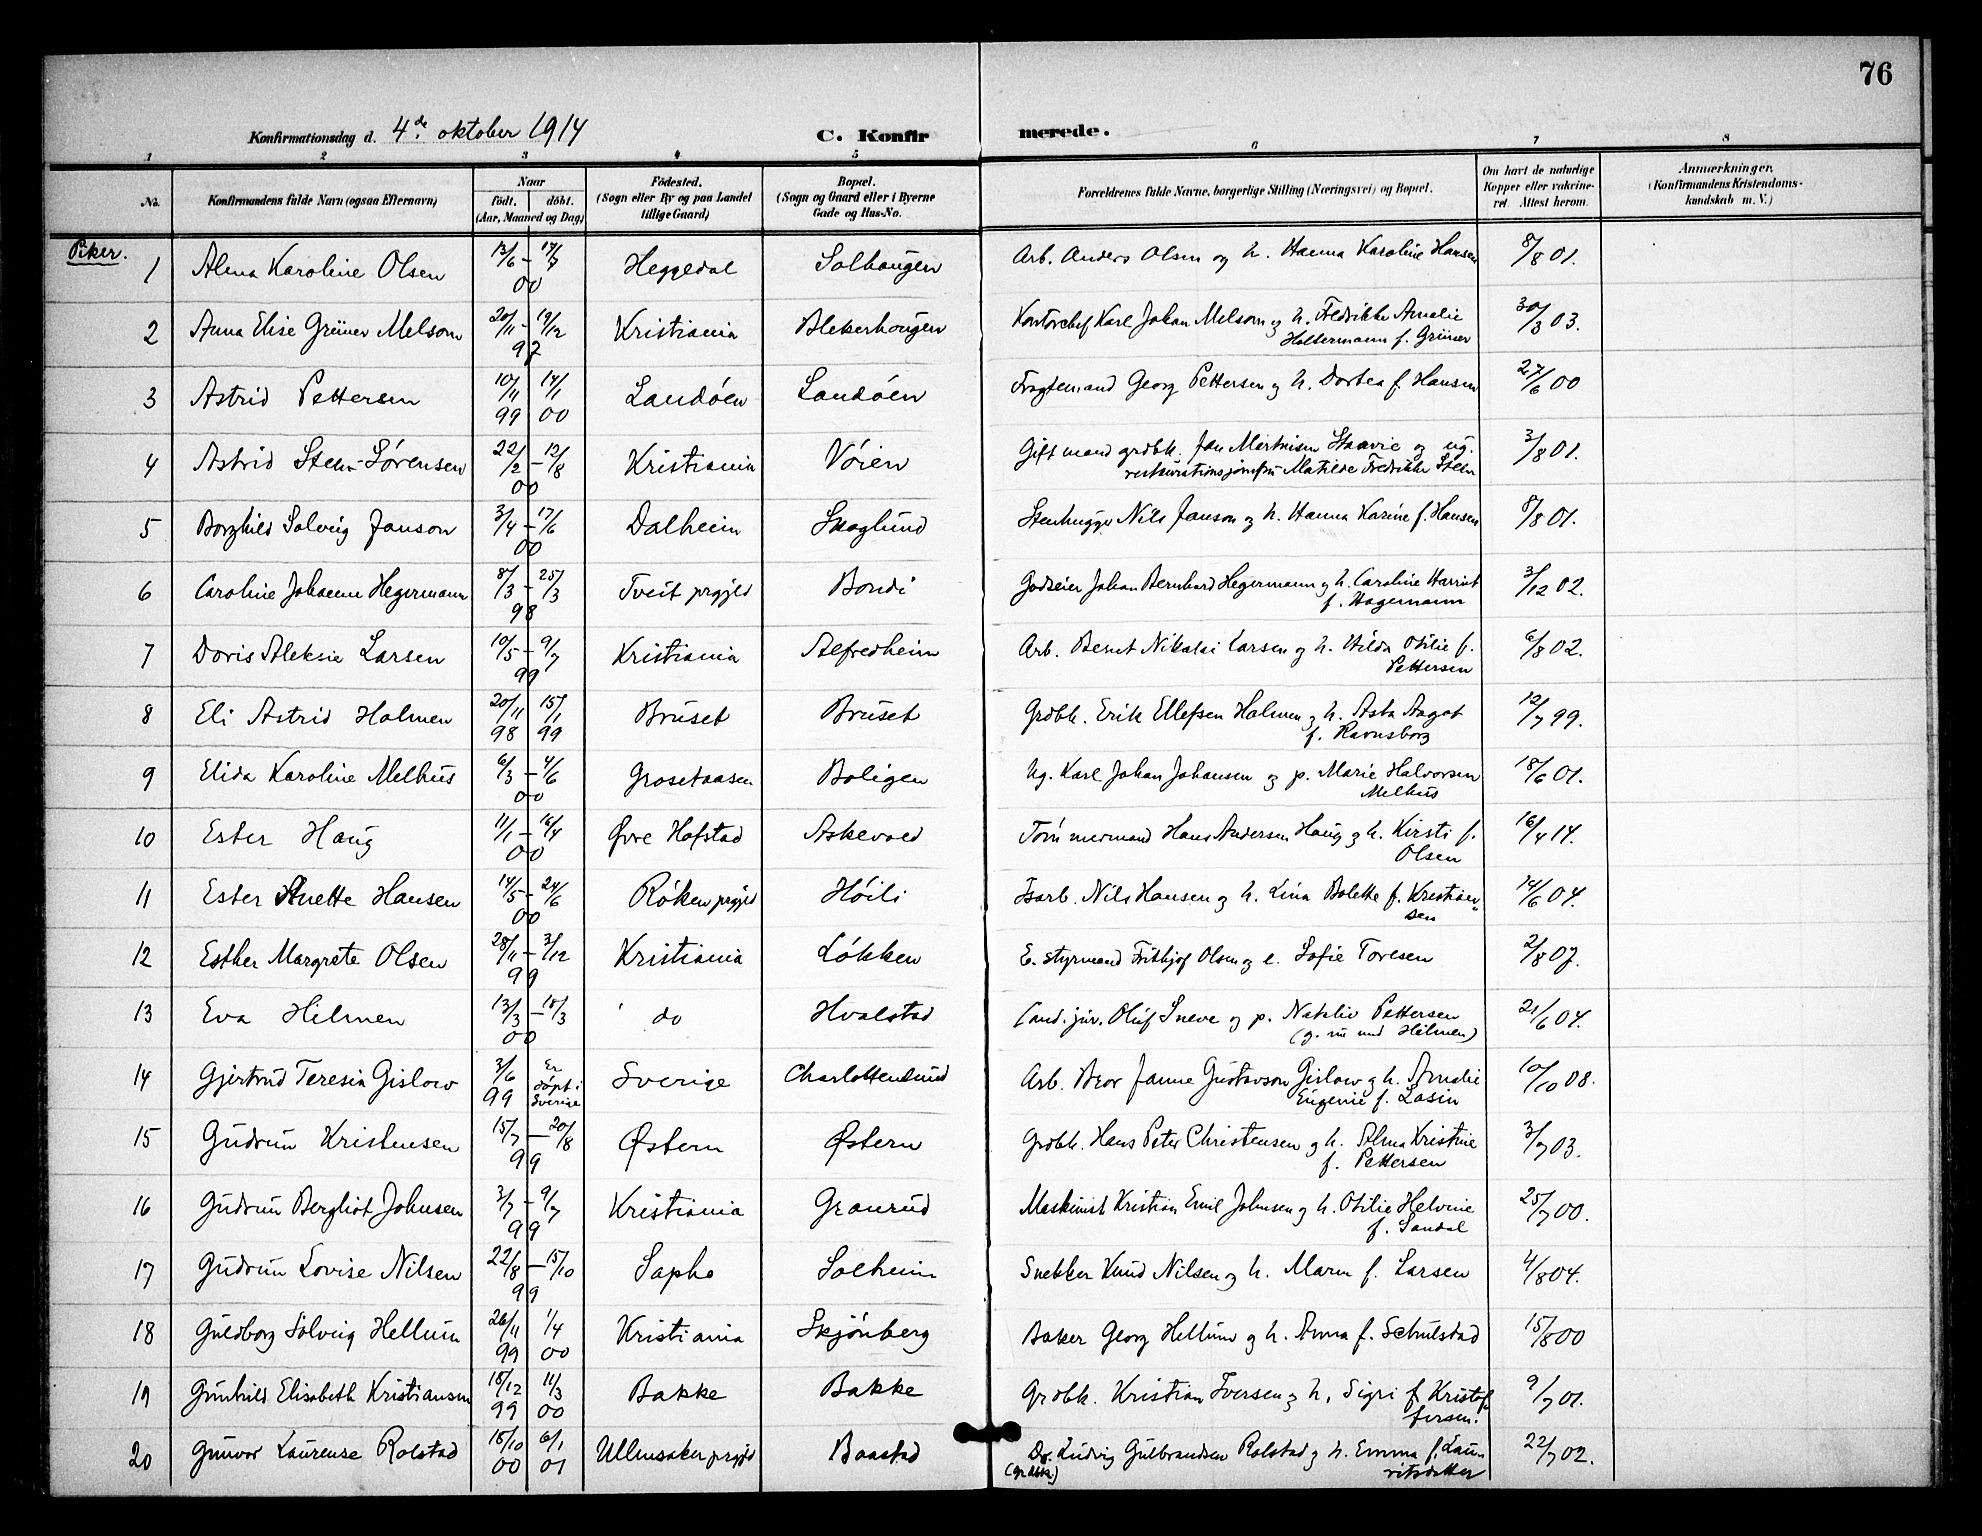 76
Konfirmationsdag d. 4de oktober 1914 C. Konfirmerede.
1 2 3 4 5 6 7 8
No. Konfirmandens fulde Navn (ogsaa Efternavn) Naar født. døbt. (Aar, Maaned og Dag) Fødested. (Sogn eller By og paa Landet tillige Gaard) Bopæl. (Sogn og Gaard eller i Byerne Gade og Hus-No. Forældrenes fulde Navne, borgerlige Stilling (Næringsvei) og Bopæl. Om havt de naturlige Kopper eller vakcineret. Attest herom. Anmærkninger. (Konfirmandens Kristendomskundskab m. V.)
Piker.
1 Alma Karoline Olsen 13/6 – 17/7 00 Heggedal Solhaugen Arb. Anders Olsen og h. Hanna Karoline Hansen 8/8 01.
2 Anna Elise Grüner Melsom 20/11 – 19/12 97 Kristiania Blekerhaugen Kontorchef Karl Johan Melsom og h. Fredrikke Amalie Holtermann f. Grüner 30/3 03.
3 Astrid Pettersen 10/11 99 14/1 00 Landøen Landøen Fragtemand Georg Pettersen og h. Dortea f. Hansen 27/6 00
4 Astrid Steen-Sørensen 22/2 – 12/8 00 Kristiania Vøien Gift mand grdbk. Jan Martinsen Staavie og ug. restaurationsjomfru Matilde Fredrikke Steen 3/8 01.
5 Borghild Solveig Janson 3/4 – 17/6 00 Dalheim Skoglund Stenhugger Nils Janson og h. Hanna Karine f. Hansen 8/8 01.
6 Caroline Johanne Hegermann 8/3 – 25/3 98 Tveit prgjld Bondi Godseier Johan Bernhard Hegermann og h. Caroline Harriet f. Hagemann 3/12 02.
7 Doris Aleksie Larsen 10/5 – 9/7 99 Kristiania Alfredheim Arb. Bernt Nikolai Larsen og h. Hilda Otilie f. Pettersen 6/8 02.
8 Eli Astrid Holmen 20/11 98 15/1 99 Bruset Bruset Grdbk. Erik Ellefsen Holmen og h. Asta Aagot f. Ravnsborg 12/7 99.
9 Elida Karoline Melhus 6/3 – 4/6 00 Grosetaasen Boligen Ug. Karl Johan Johansen og p. Marie Halvorsen Melhus 18/6 01.
10 Ester Haug 11/1 – 16/4 00 Øvre Hofstad Askevold Tømmermand Hans Andersen Haug og h. Kirsti f. Olsen 16/4 14.
11 Ester Anette Hansen 14/5 – 24/6 00 Røken prgjld Høili Isarb. Nils Hansen og h. Lina Bolette f. Kristiansen 14/6 04.
12 Esther Margrete Olsen 28/11 – 3/12 99 Kristiania Løkken E. styrmand Frithjof Olsen og e. Sofie Toresen 2/8 07.
13 Eva Hilmen 13/3 – 18/3 00 do Hvalstad Cand. jur. Oluf Sneve og p. Natalie Pettersen (g. nu med Hilmen) 21/6 04.
14 Gjertrud Teresia Gislow 3/6 99 Er døpt i Sverige Sverige Charlottenlund Arb. Bror Janne Gustavson Gislow og h. Amalie Eugenie f. Lasin 10/10 08.
15 Gudrun Kristensen 15/7 – 20/8 99 Østern Østern Grdbk. Hans Peter Christensen og h. Alma Kristine f. Pettersen 3/7 03.
16 Gudrun Bergliot Johnsen 3/7 – 9/7 99 Kristiania Granrud Maskinist Kristian Emil Johnsen og h. Otilie Helvine f. Sandal 25/7 00.
17 Gudrun Lovise Nilsen 22/8 – 15/10 99 Sapho Solheim Snekker Knud Nilsen og h. Maren f. Larsen 4/8 04.
18 Guldborg Solveig Hellum 26/11 99 1/4 00 Kristiania Skjønberg Baker Georg Hellum og h. Anna f. Schulstad 15/8 00
19 Gunhild Elisabeth Kristiansen 18/12 99 11/3 00 Bakke Bakke Grdbk. Kristian Iversen og h. Sigri f. Kristoffersen. 9/7 01.
20 Gunvor Laurense Rolstad 18/10 00 6/1 01 Ullensaker prgjld Baastad Dr. Ludvig Gulbrandsen Rolstad og h. Emma f. Lauritsdatter (grdbk.) 22/7 02.